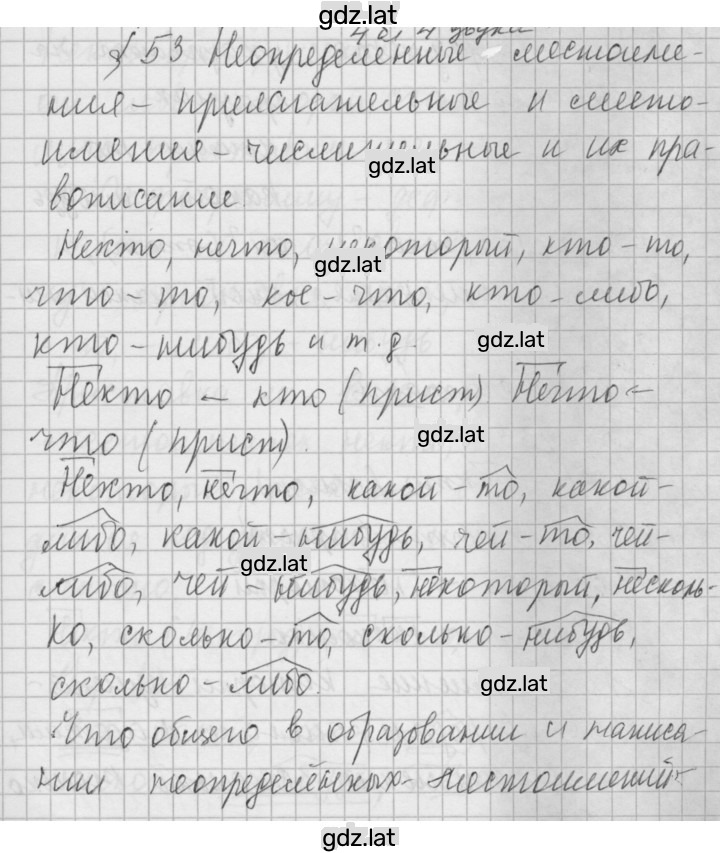 gdz.lat
4 б, 4 звука
§ 53 Неопределённые местоиме-
ния - прилагательные и место-
имения - числительные и их пра-
gdz.lat
вописание.
Некто, нечто, некоторый, кто-то,
gdz.lat
что-то, кое-что, кто-либо,
кто-нибудь и т.д.
gdz.lat
Некто ← кто (прист) Нечто ←
что (прист).
gdz.lat
Некто, нечто, какой-то, какой-
либо, какой-нибудь, чей-то, чей-
gdz.lat
либо, чей-нибудь, некоторый, несколь-
ко, сколько-то, сколько-нибудь,
сколько-либо.
gdz.lat
Что общего в образовании и написа-
нии неопределённых местоимений-
gdz.lat